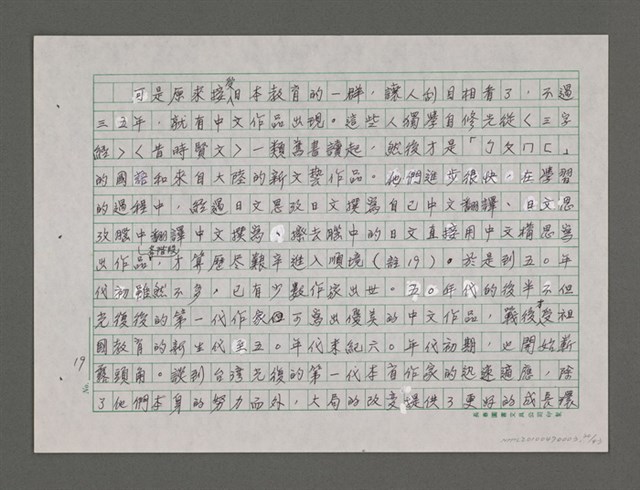 可是原來接受日本教育的一群，讓人刮目相看了，不過
三五年，就有中文作品出現。這些人獨學自修先從〈三字
經〉〈昔時賢文〉一類舊書讀起，然後才是「ㄅㄆㄇㄈ」
的國語和來自大陸的新文藝作品。他們進步很快。在學習
的過程中，經過日文思考日文撰寫自己中文翻譯、日文思
考腦中翻譯中文撰寫、擦去腦中的日文直接用中文構思寫
出作品各階段，才算歷尽艱辛進入順境（註19）。於是到五０年
代初雖然不多，已有少數作家出世。五０年代的後半不但
光復後的第一代作家可寫出優美的中文作品，戰後才受祖
國教育的新生代至五０年代末紀六０年代初期，也開始嶄
露頭角。談到台湾光復的第一代本省作家的迅速適應，除
了他們本身的努力而外，大局的改變提供了更好的成長環
19
No.